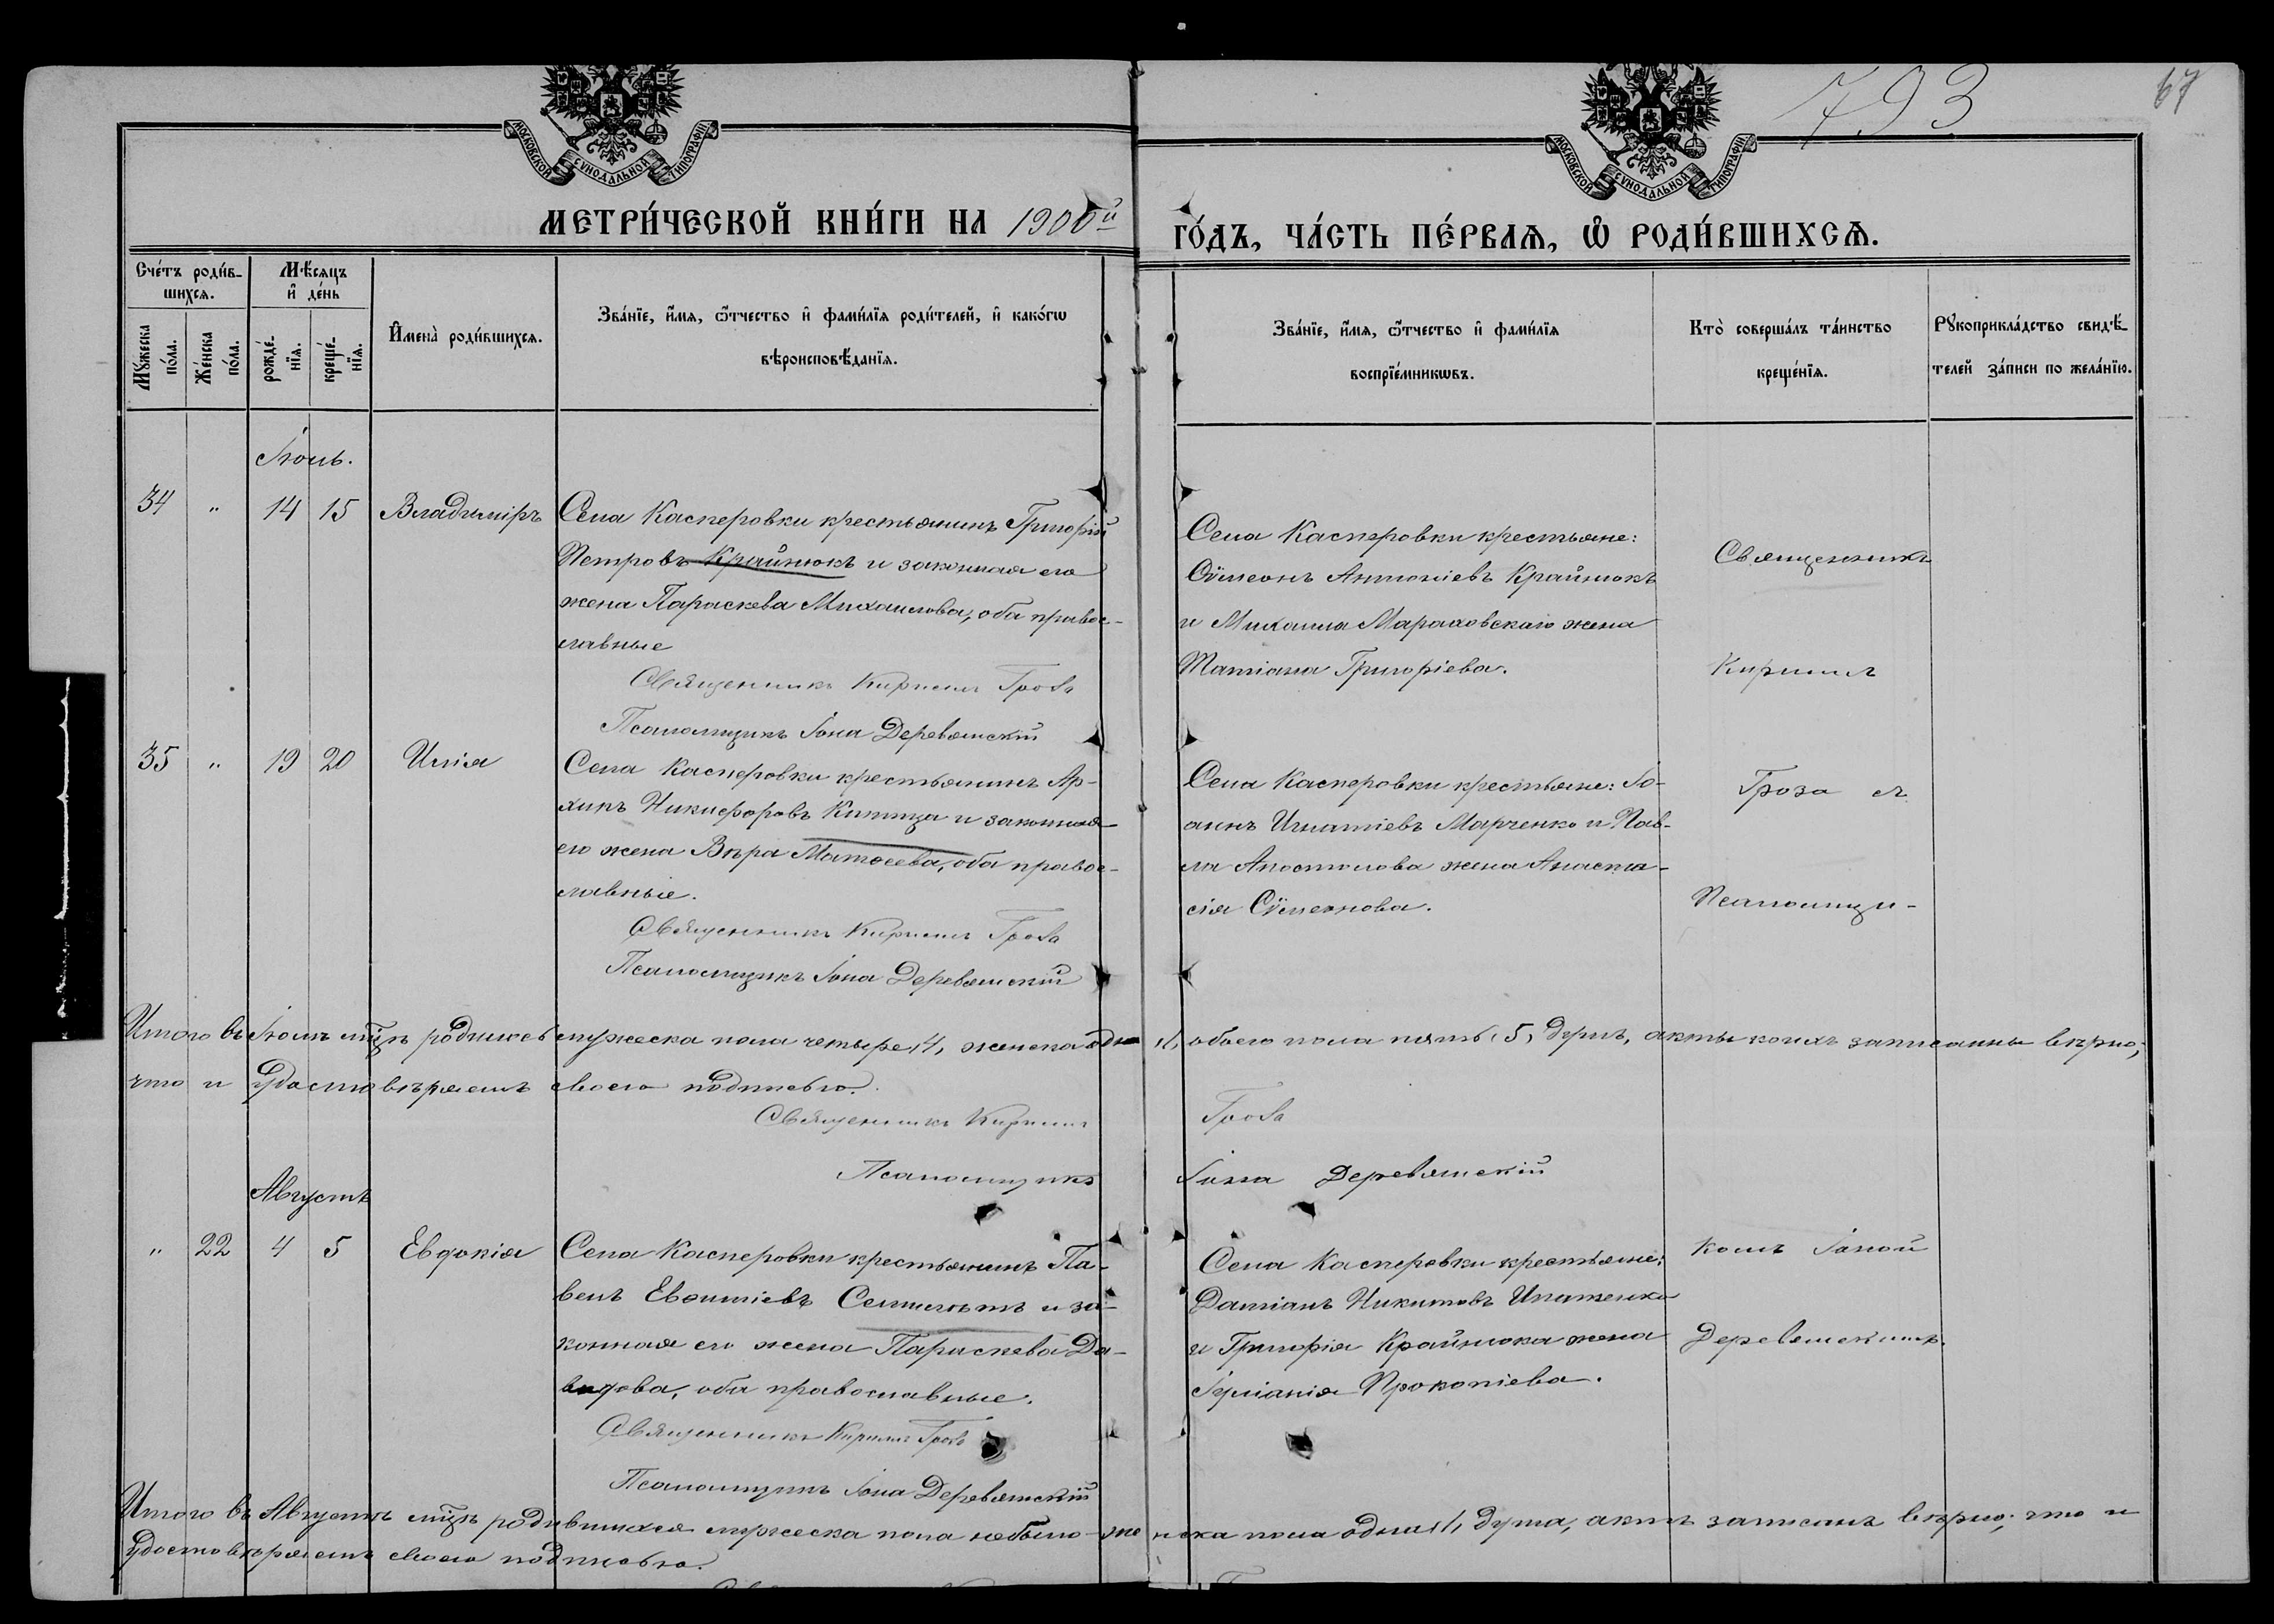 793
67
МОСКОВСКОЙ СѴНОДАЛЬНОЙ ТИПОГРАФІИ
МОСКОВСКОЙ СѴНОДАЛЬНОЙ ТИПОГРАФІИ
МЕТРИ́ЧЕСКОЙ КНИ́ГИ НА 1900й ГО́ДЪ, ЧА́СТЬ ПЕ́РВАѦ, Ѡ҆ РОДИ́ВШИХСѦ.
Сче́тъ роди́в-
шихсѧ.
Мѣ́сѧцъ
и҆ де́нь
Мꙋ́жеска
по́ла.
Же́нска
по́ла.
рожде́-
нїѧ.
креще́-
нїѧ.
И҆мена̀ роди́вшихсѧ.
Зва́нїе, и҆́мѧ, ѻ҆́тчество и҆ фами́лїѧ роди́телей, и҆ како́гѡ
вѣроисповѣ́данїѧ.
Зва́нїе, и҆́мѧ, ѻ҆́тчество и҆ фами́лїѧ
воспрїе́мникѡвъ.
Кто̀ соверша́лъ та́инство
креще́нїѧ.
Рꙋкоприкла́дство свидѣ́-
телей за́писи по жела́нїю.
Іюль.
34 " 14 15 Владиміръ
Села Касперовки крестьянинъ Григорій
Петровъ Крайнюкъ и законная его
жена Параскева Михаилова, оба правос-
лавные
Священникъ Кириллъ Гроза
Псаломщикъ Іона Деревянскій
Села Касперовки крестьяне:
Сѵмеонъ Антоніевъ Крайнюкъ
и Михаила Мараховскаго жена
Татіана Григоріева.
Священникъ
Кирилл
35 " 19 20 Илія
Села Касперовки крестьянинъ Ар-
хипъ Никифоровъ Кипица и законная
его жена Вѣра Матѳеева, оба правос-
лавные.
Священникъ Кириллъ Гроза
Псаломщикъ Іона Деревянскій
Села Касперовки крестьяне: Іо-
аннъ Игнатіевъ Марченко и Пав-
ла Апостолова жена Анаста-
сія Сѵмеонова.
Гроза съ
Псаломщи-
Итого въ Іюлѣ мцѣ родилось мужеска пола четыре, 4, женска одна 1, обоего пола пять, 5, душъ, акты коихъ записанны вѣрно,
что и удостовѣряемъ своею подписью.
Священникъ Кириллъ Гроза
Псаломщикъ Іона Деревянскій
Августъ
" 22 4 5 Евдокія
Села Касперовки крестьянинъ Па-
велъ Евѳиміевъ и за-
конная его жена Параскева Да-
видова, оба православные.
Священникъ Кириллъ Гроза
Псаломщикъ Іона Деревянскій
Села Касперовки крестьяне:
Даміанъ Никитовъ Ипатенко
и Григорія Крайнюка жена
Іуліанія Прокопіева.
комъ Іоной
Деревянскимъ.
Итого въ Августѣ мцѣ родившихся мужеска пола не было женска пола одна, 1, душа, актъ записанъ вѣрно; что и
удостовѣряемъ своею подписью.